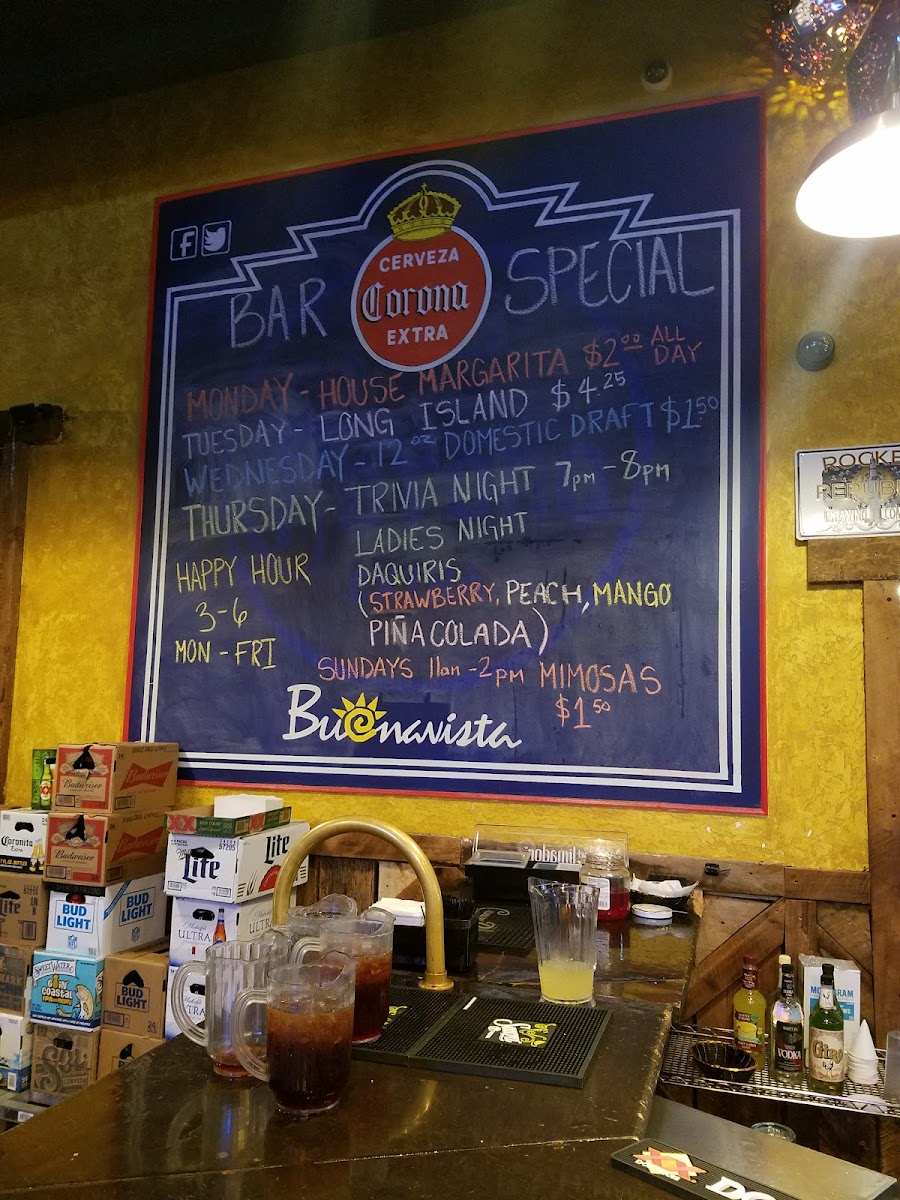 CERVEZA
Corona
EXTRA
BAR SPECIAL
MONDAY - HOUSE MARGARITA $2.00 ALL DAY
TUESDAY - LONG ISLAND $4.25
WEDNESDAY - 12 oz DOMESTIC DRAFT $1.50
THURSDAY - TRIVIA NIGHT 7pm - 8pm
LADIES NIGHT
DAQUIRIS
(STRAWBERRY, PEACH, MANGO
PIÑA COLADA)
HAPPY HOUR
3-6
MON - FRI
SUNDAYS 11am - 2pm MIMOSAS
$1.50
Buenavista
ROCKE
Budweiser
Budweiser
Coronita
Extra
Budweiser
Lite
Lite
BUD LIGHT
BUD LIGHT
ULTRA
ULTRA
Lite
SWEETWATER
GOIN' COASTAL
BUD LIGHT
Sol
VODKA
XX
DO